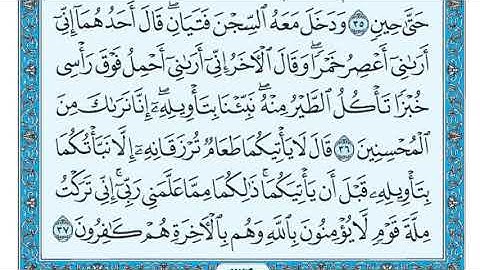 حَتَّىٰ حِينٍ ٣٥ وَدَخَلَ مَعَهُ ٱلسِّجْنَ فَتَيَانِۖ قَالَ أَحَدُهُمَآ إِنِّيٓ
أَرَىٰنِيٓ أَعْصِرُ خَمْرٗاۖ وَقَالَ ٱلْأٓخَرُ إِنِّيٓ أَرَىٰنِيٓ أَحْمِلُ فَوْقَ رَأْسِي
خُبْزٗا تَأْكُلُ ٱلطَّيْرُ مِنْهُۖ نَبِّئْنَا بِتَأْوِيلِهِۦٓۖ إِنَّا نَرَىٰكَ مِنَ
ٱلْمُحْسِنِينَ ٣٦ قَالَ لَا يَأْتِيكُمَا طَعَامٞ تُرْزَقَانِهِۦٓ إِلَّا نَبَّأْتُكُمَا
بِتَأْوِيلِهِۦ قَبْلَ أَن يَأْتِيَكُمَاۚ ذَٰلِكُمَا مِمَّا عَلَّمَنِي رَبِّيٓۚ إِنِّي تَرَكْتُ
مِلَّةَ قَوْمٖ لَّا يُؤْمِنُونَ بِٱللَّهِ وَهُم بِٱلْأٓخِرَةِ هُمْ كَٰفِرُونَ ٣٧